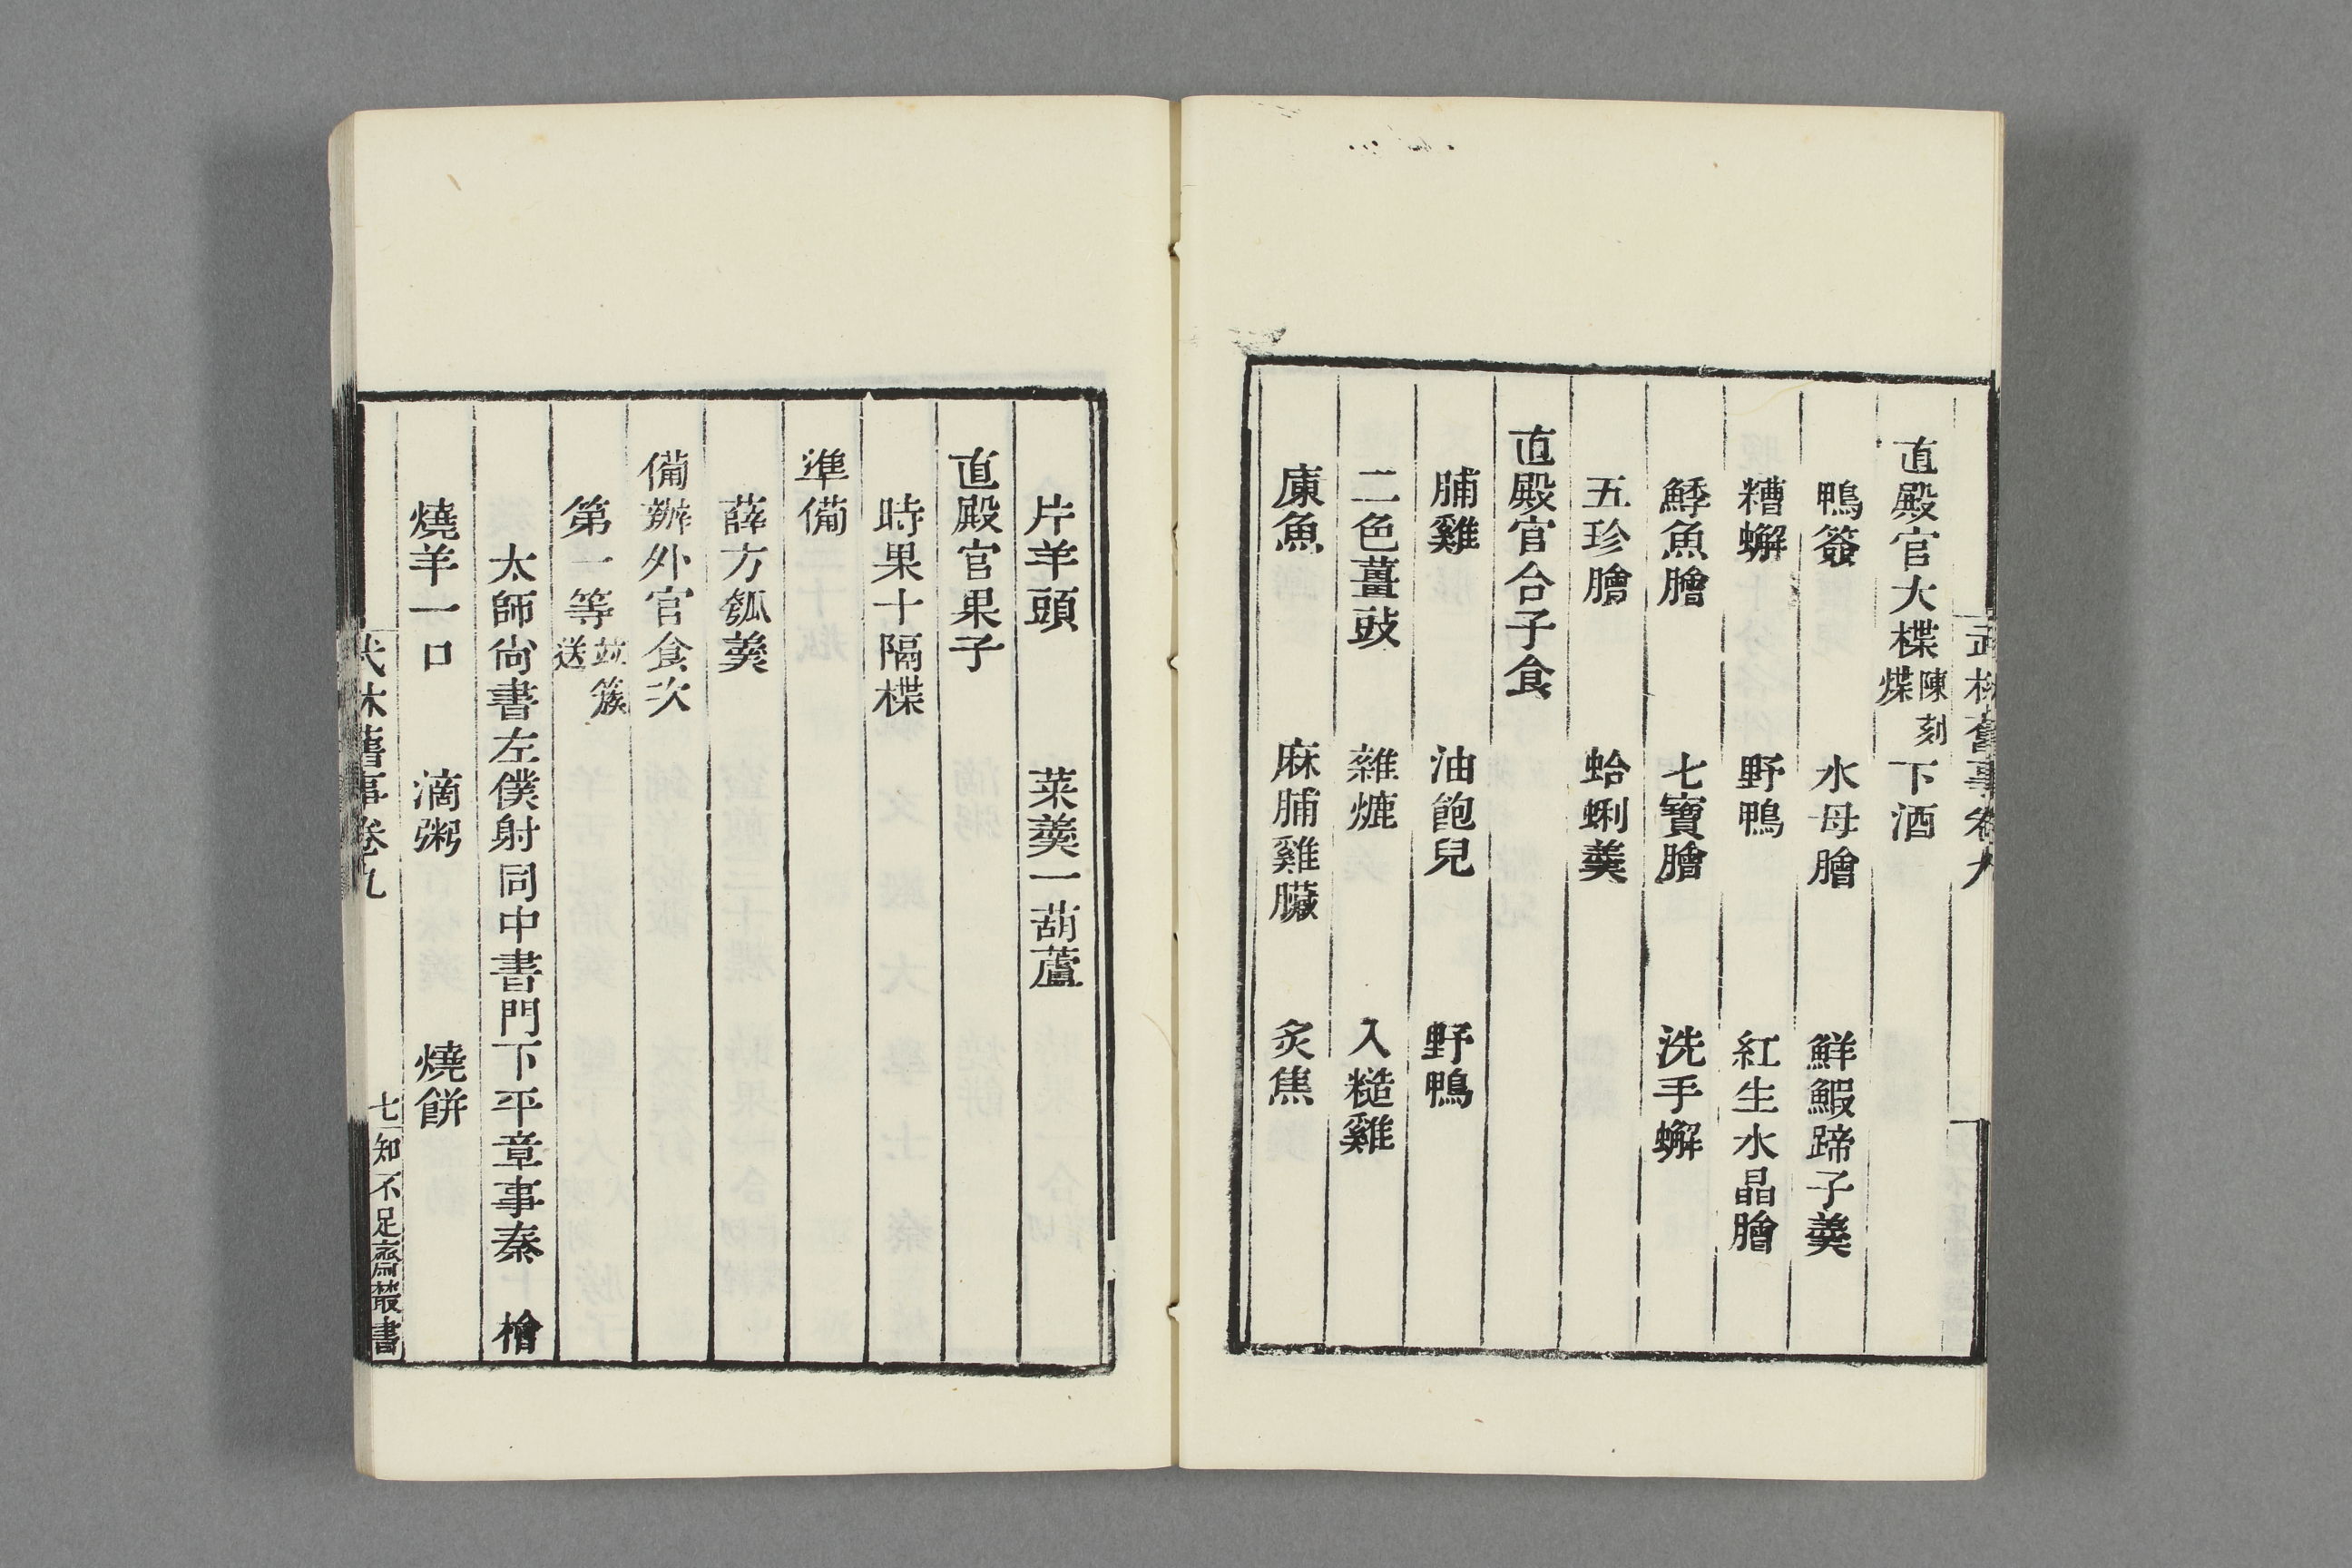 武林舊事卷九
直殿官大楪陳刻煠下酒
鴨簽 水母膾 鮮鰕蹄子羹
糟蠏 野鴨 紅生水晶膾
鯚魚膾 七寶膾 洗手蠏
五珍膾 蛤蜊羹
直殿官合子食
脯雞 油飽兒 野鴨
二色薑豉 雜熝 入糙雞
𢊍魚 麻脯雞臟 炙焦
片羊頭 菜羹一葫蘆
直殿官果子
時果十隔楪
準備
薛方瓠羹
備辦外官食次
第一等竝簇送
太師尙書左僕射同中書門下平章事秦 檜
燒羊一口 滴粥 燒餅
武林舊事卷九 七 知不足齋叢書